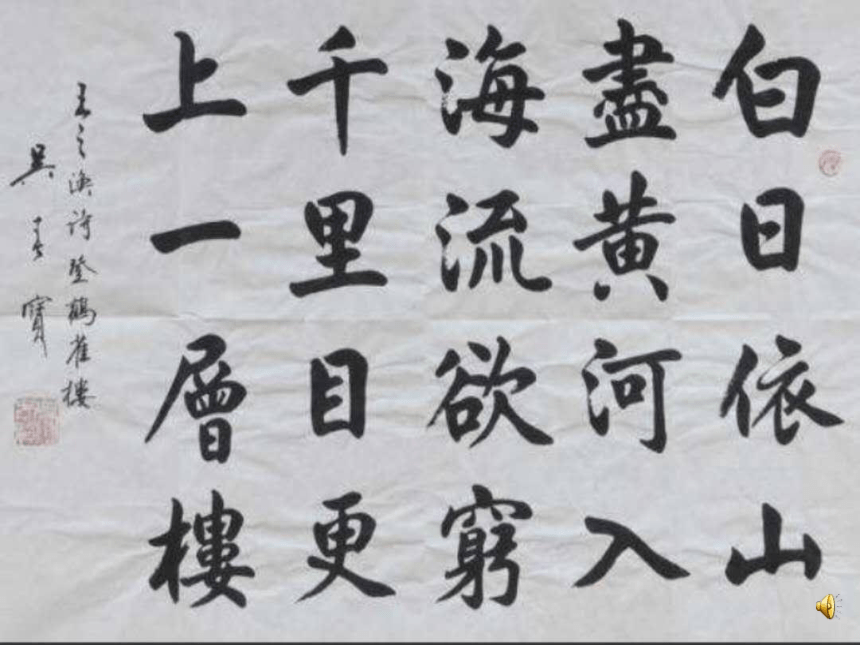 白日依山
盡黃河入
海流欲窮
千里目更
上一層樓
王之渙詩登鸛雀樓
吴春寶